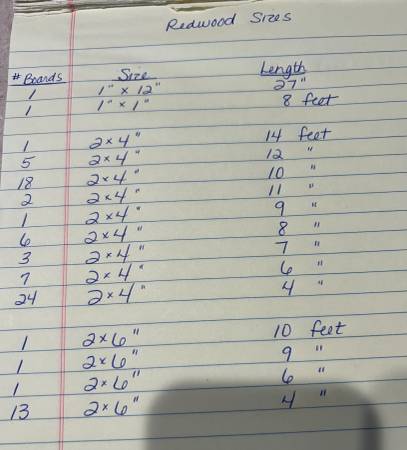 Redwood Sizes
# Boards Size Length
1 1" x 12" 27"
1 1" x 1" 8 feet
1 2x4" 14 feet
5 2x4" 12 "
18 2x4" 10 "
2 2x4" 11 "
1 2x4" 9 "
6 2x4" 8 "
3 2x4" 7 "
7 2x4" 6 "
24 2x4" 4 "
1 2x6" 10 feet
1 2x6" 9 "
1 2x6" 6 "
13 2x6" 4 "